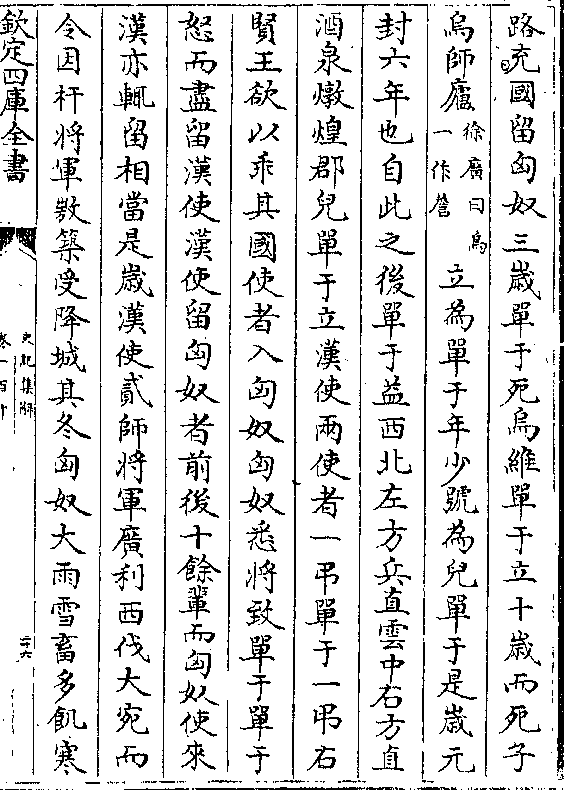 路充國留匈奴三歲單于死烏維單于立十歲而死子
烏師廬徐廣曰烏一作詹立為單于年少號為兒單于是歲元
封六年也自此之後單于益西北左方兵直雲中右方直
酒泉燉煌郡兒單于立漢使兩使者一弔單于一弔右
賢王欲以乖其國使者入匈奴匈奴悉將致單于單于
怒而盡留漢使漢使留匈奴者前後十餘輩而匈奴使來
漢亦輒留相當是歲漢使貳師將軍廣利西伐大宛而
令因杅將軍敖築受降城其冬匈奴大雨雪畜多飢寒
欽定四庫全書
史記集解
卷一百十
二十六